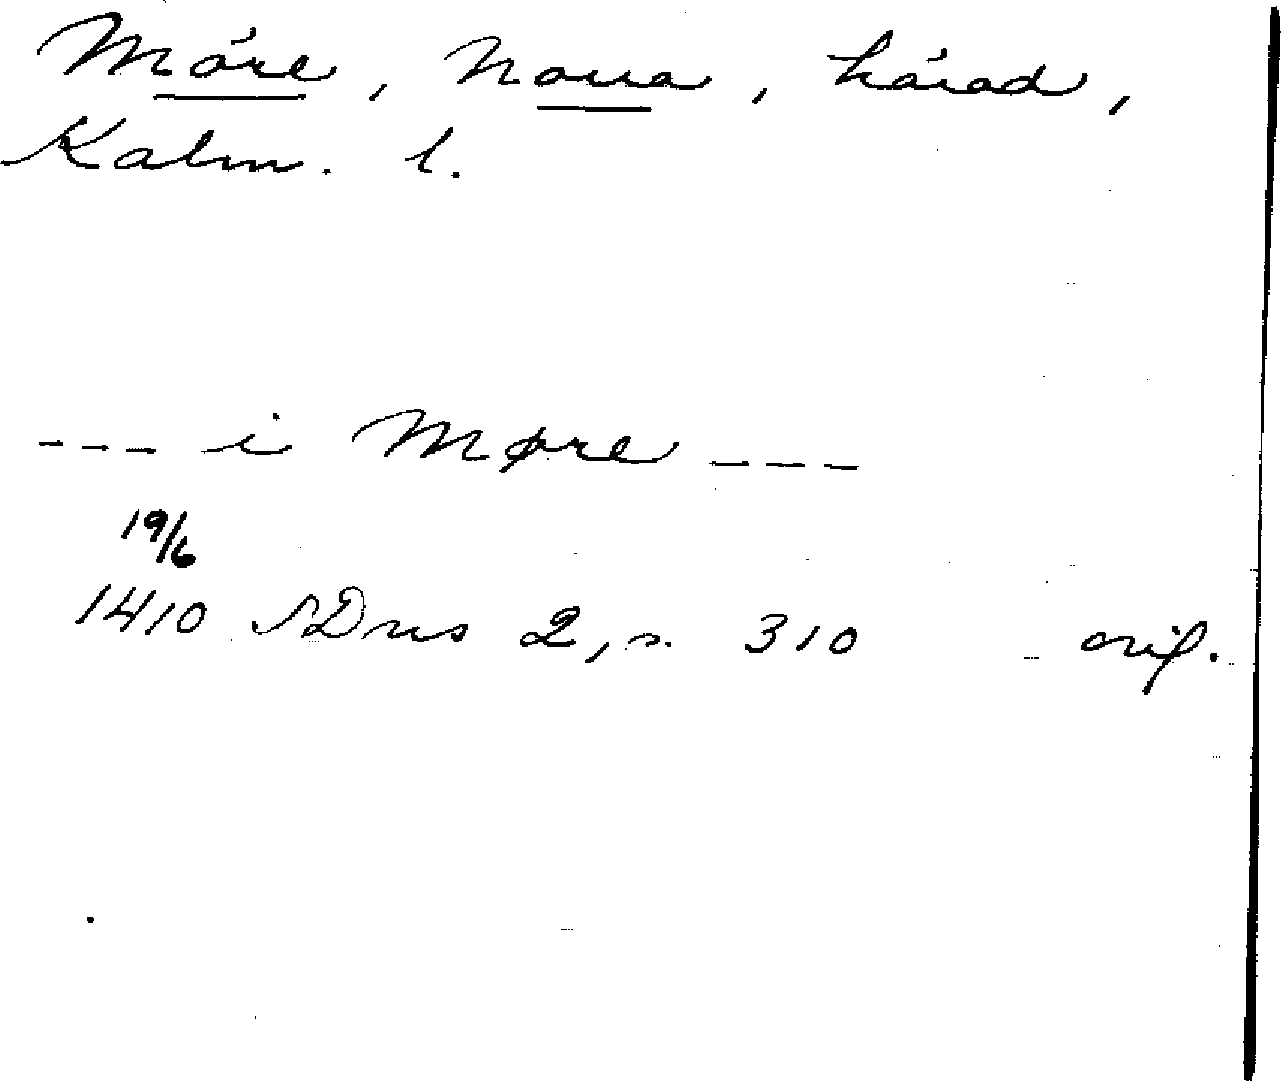 Möre, Norra, härad,
Kalm. l.
--- i Møre ---
19/6
1410 SDns 2, s. 310 orig.